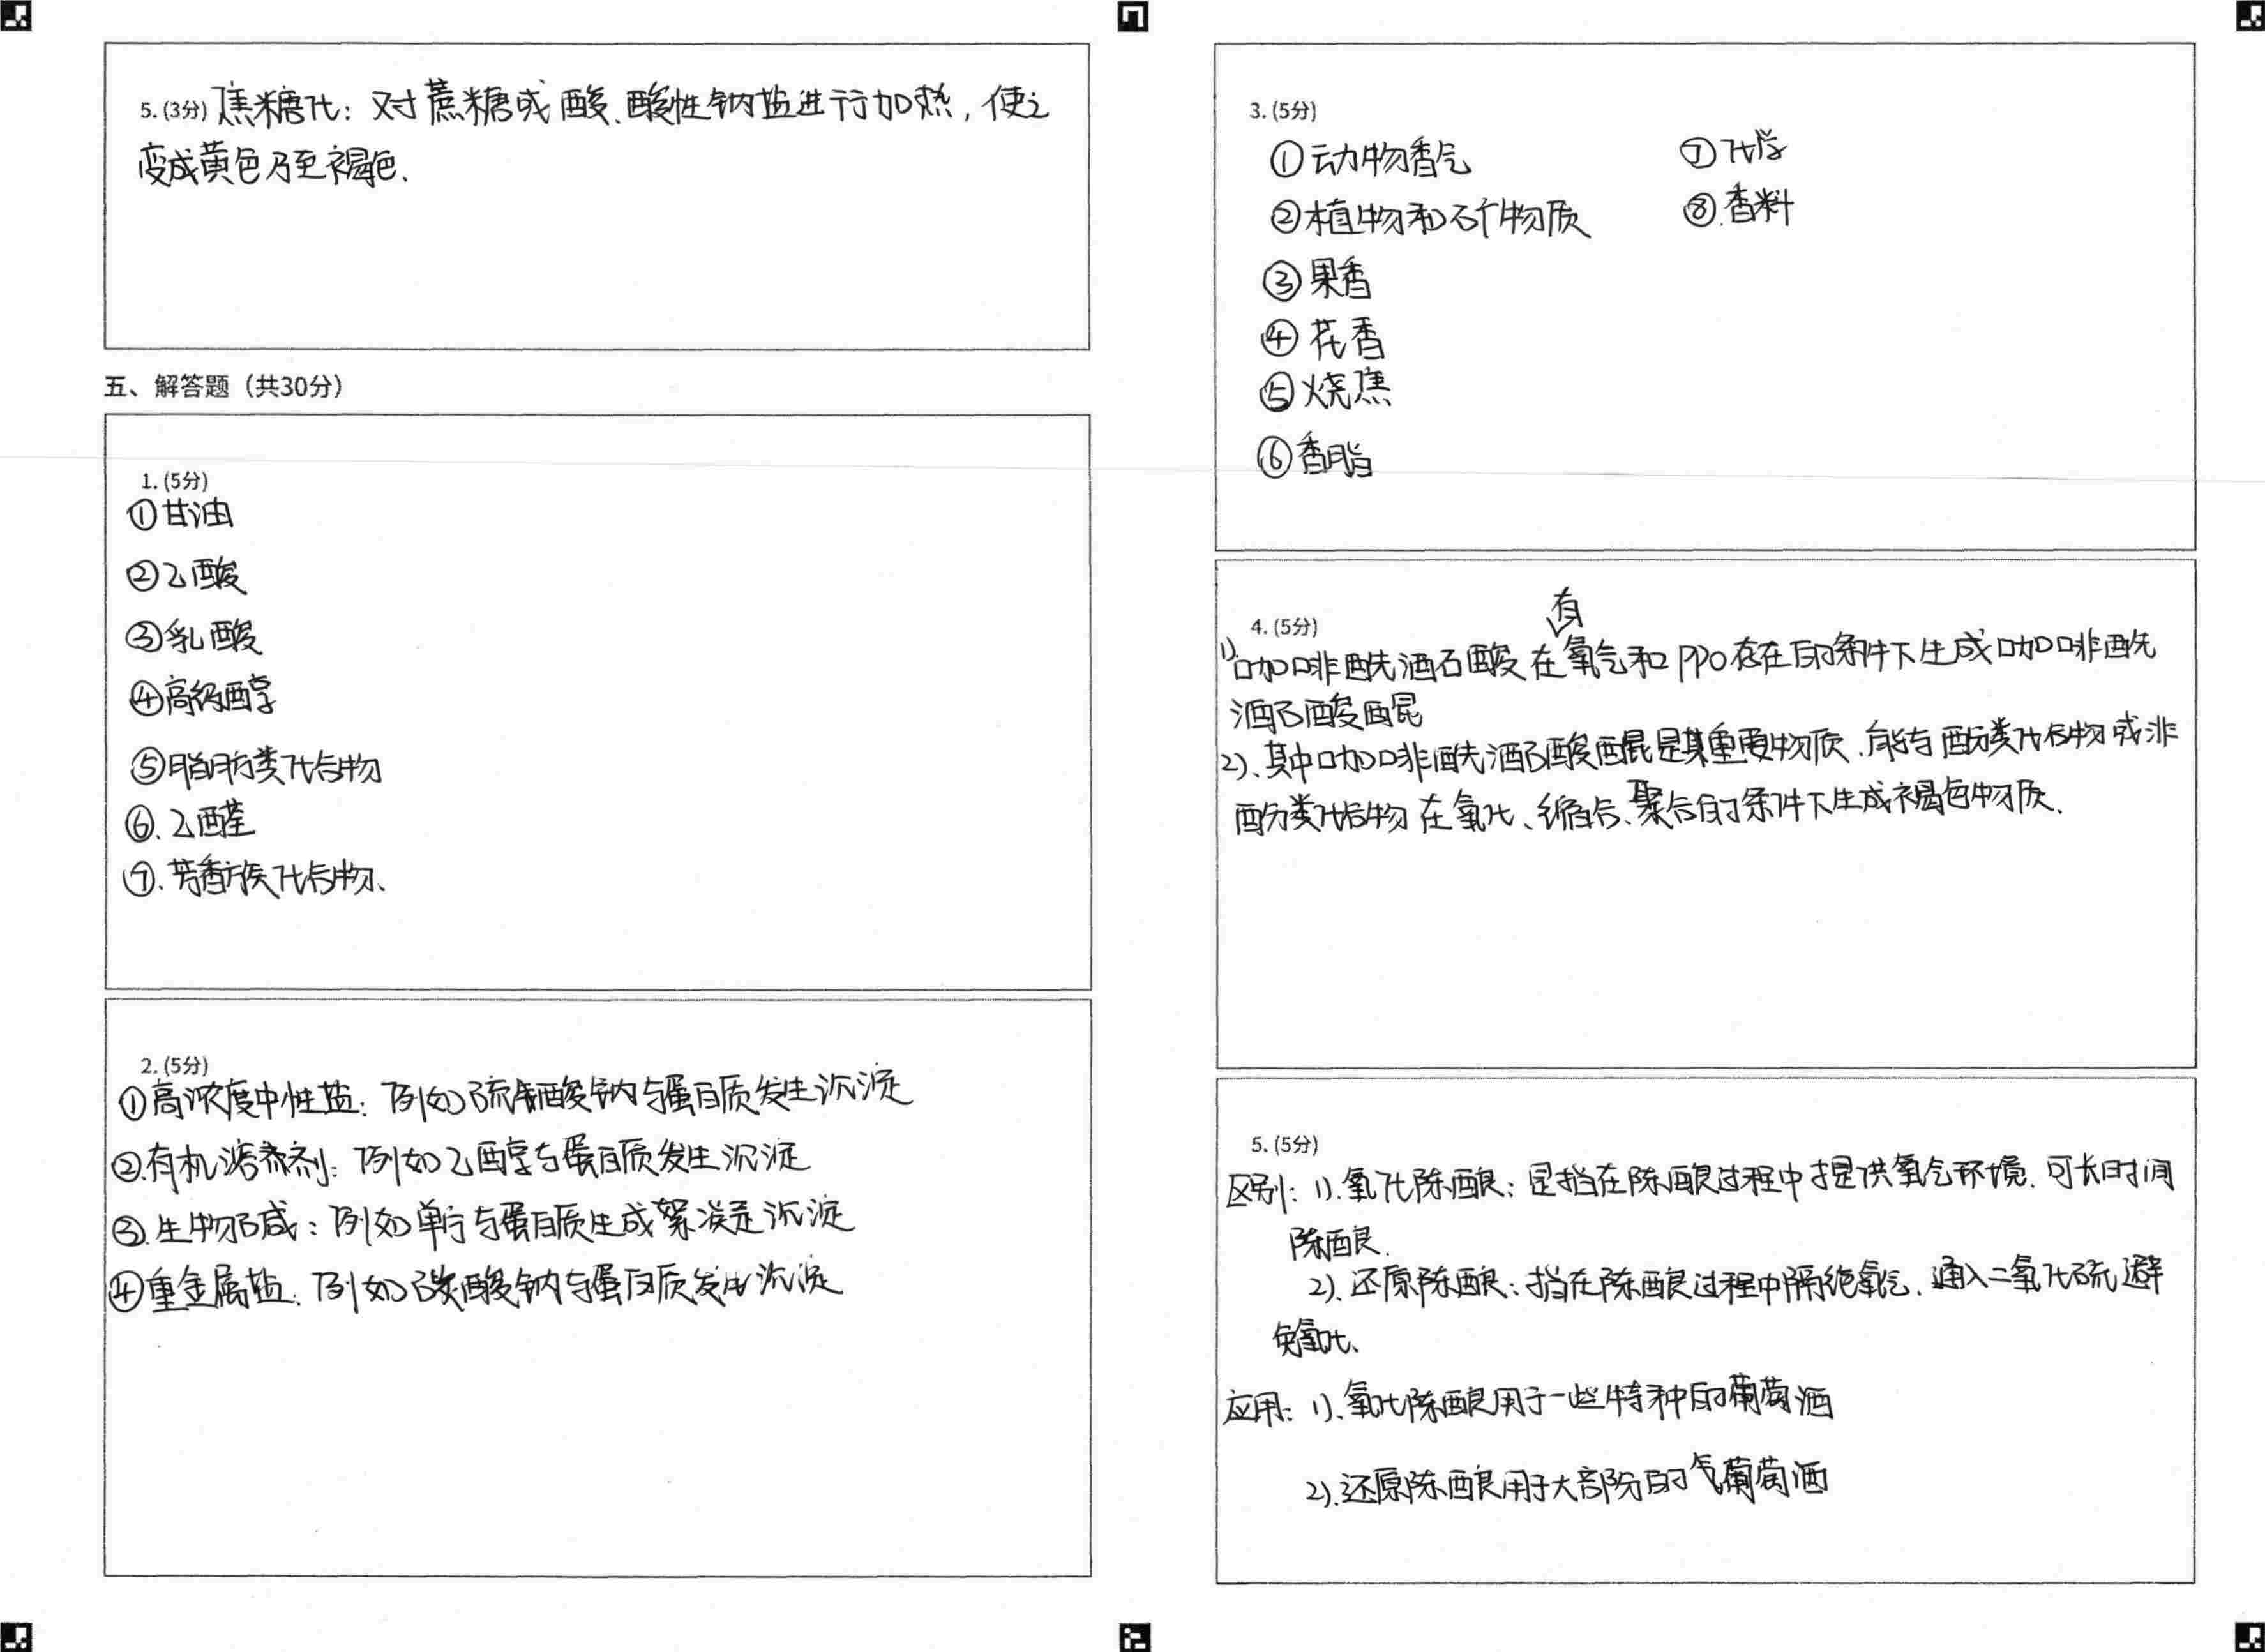 5. (3分) 焦糖化：对蔗糖或酸、酸性钠盐进行加热，使之
变成黄色乃至褐色.
五、解答题（共30分）
1. (5分)
①甘油
②乙酸
③乳酸
④高级醇
⑤脂肪类化合物
⑥.乙醛
⑦.芳香族化合物、
2. (5分)
①高浓度中性盐：例如硫酸钠与蛋白质发生沉淀
②.有机溶剂：例如乙醇与蛋白质发生沉淀
③.生物碱：例如单宁与蛋白质生成絮凝沉淀
④重金属盐：例如碳酸钠与蛋白质发生沉淀
3. (5分)
①动物香气
②植物和矿物质
③果香
④花香
⑤烧焦
⑥香脂
⑦化学
⑧.香料
4. (5分)
1).咖啡酰酒石酸在有氧气和PPO存在的条件下生成咖啡酰
酒石酸醌
2)、其中咖啡酰酒石酸醌是其重要物质.能与酚类化合物或非
酚类化合物在氧化、缩合、聚合的条件下生成褐色物质.
5. (5分)
区别：1).氧化陈酿：是指在陈酿过程中提供氧气环境.可长时间
陈酿.
2).还原陈酿：指在陈酿过程中隔绝氧气.通入二氧化硫避
免氧化、
应用：1).氧化陈酿用于一些特种的葡萄酒
2).还原陈酿用于大部分的气葡萄酒